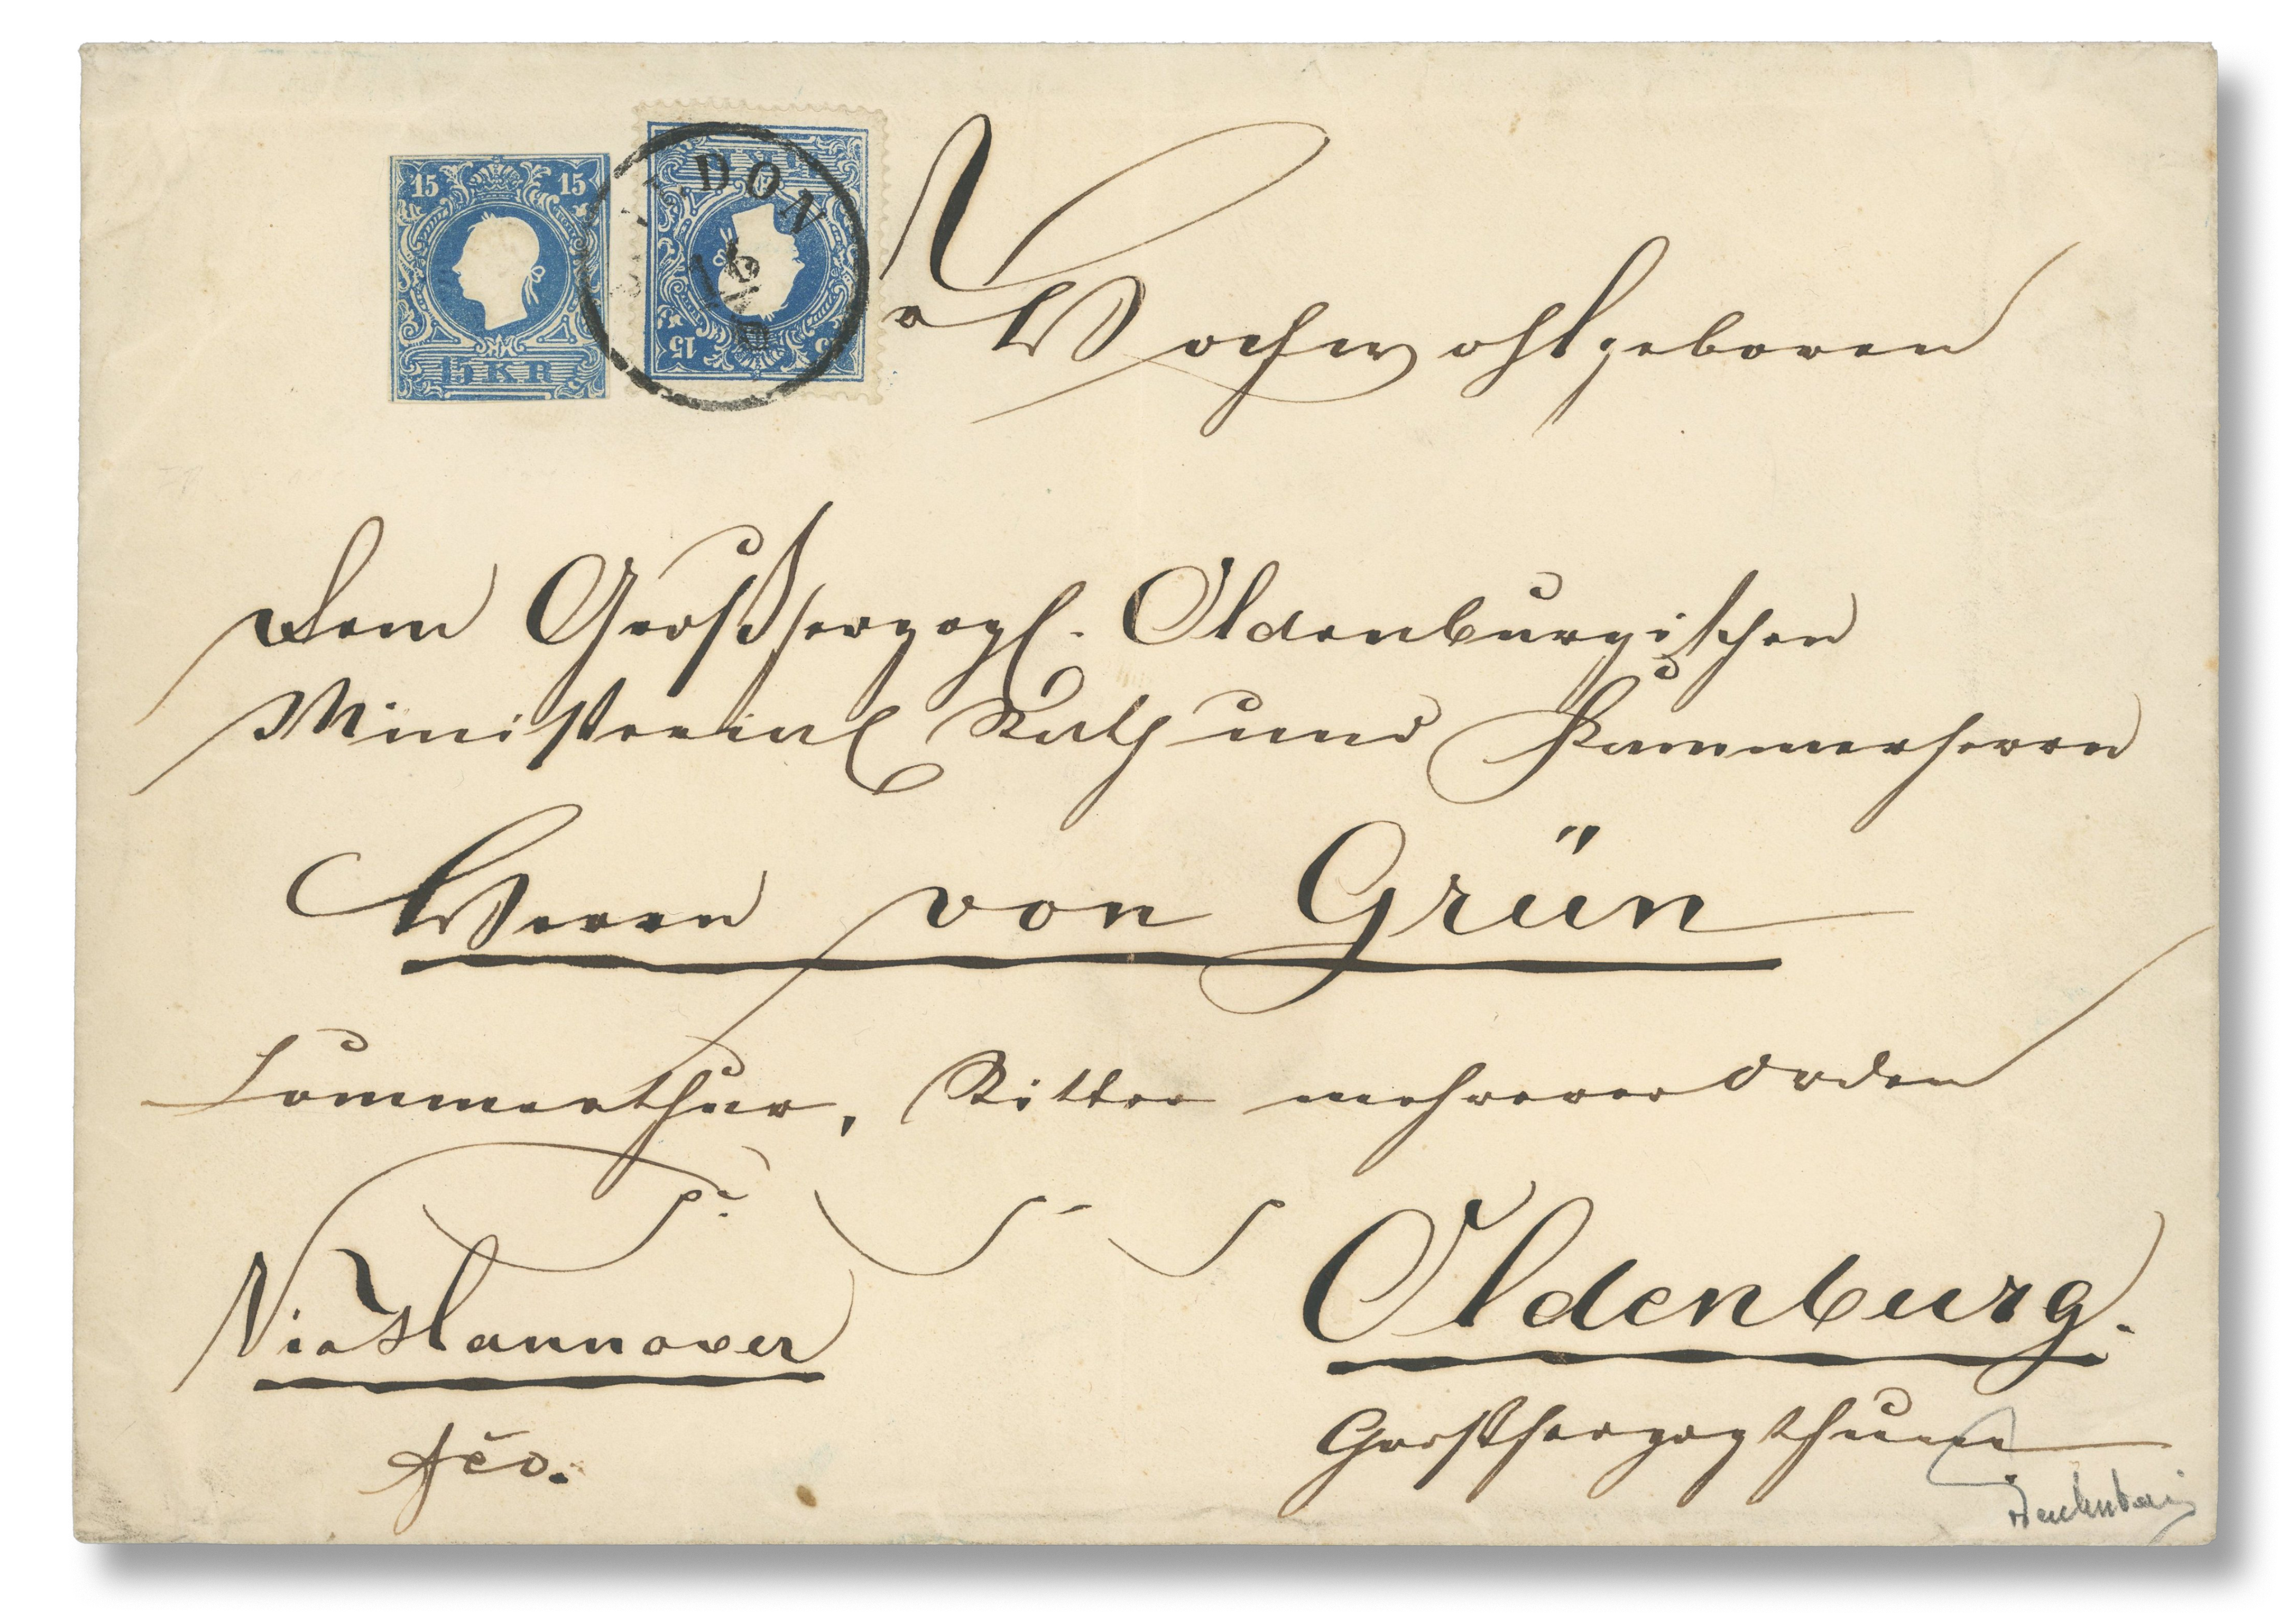 15 15
15 KR
15 KR
15
DON
Hochwohlgeboren
Dem Großherzogl. Oldenburgischen
Ministerial Rath und Kammerherrn
Herrn von Grün
Commenthur, Ritter mehrerer Orden
Via Hannover
fco.
Oldenburg.
Großherzogthum